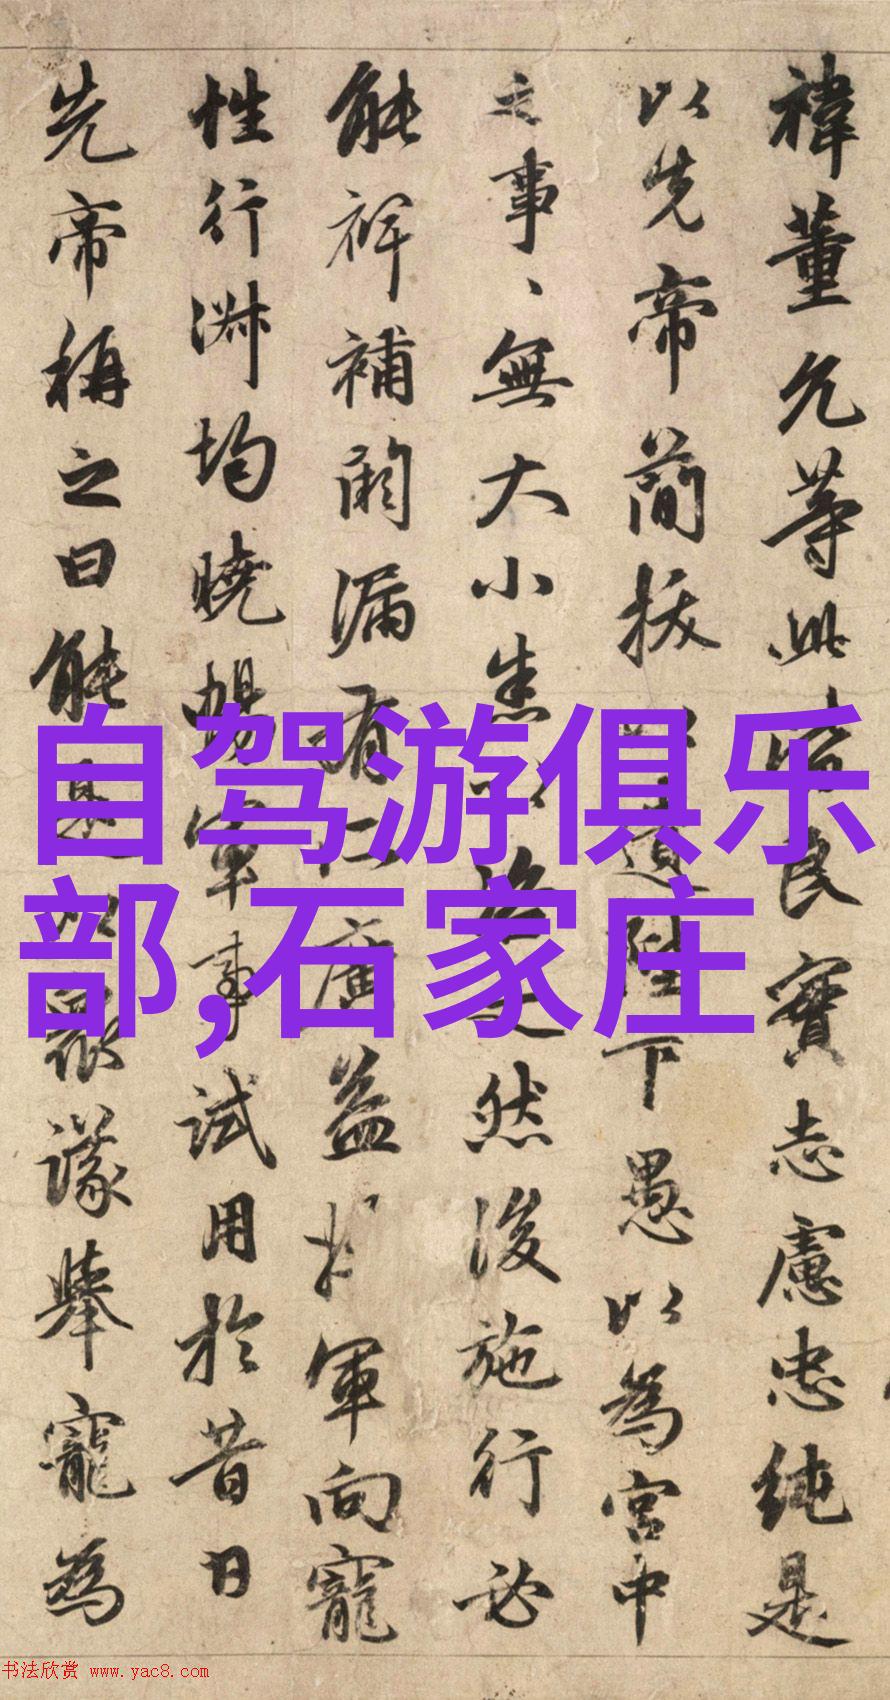 禕董允等此皆良實志慮忠純是
以先帝簡拔以遺陛下愚以為宮中
之事、無大小悉以咨之然後施行必
能裨補闕漏有仁廣益將軍向寵
性行淑均曉暢軍事試用於昔日
先帝稱之曰能是以眾議舉寵為
自驾游俱乐
部,石家庄
书法欣赏 www.yac8.com